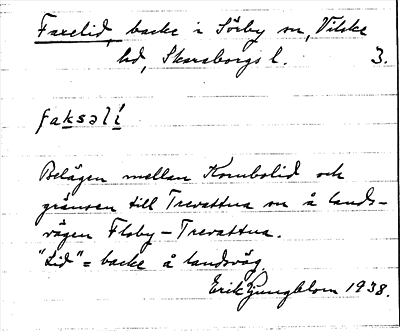 Faxelid, backe i Sörby sn, Vilske
hd, Skaraborgs l. 3.
faksəlí
Belägen mellan Kornbolid och
gränsen till Trevattna sn å lands-
vägen Floby - Trevattna.
"Lid" = backe å landsväg.
Erik Ljungblom 1938.